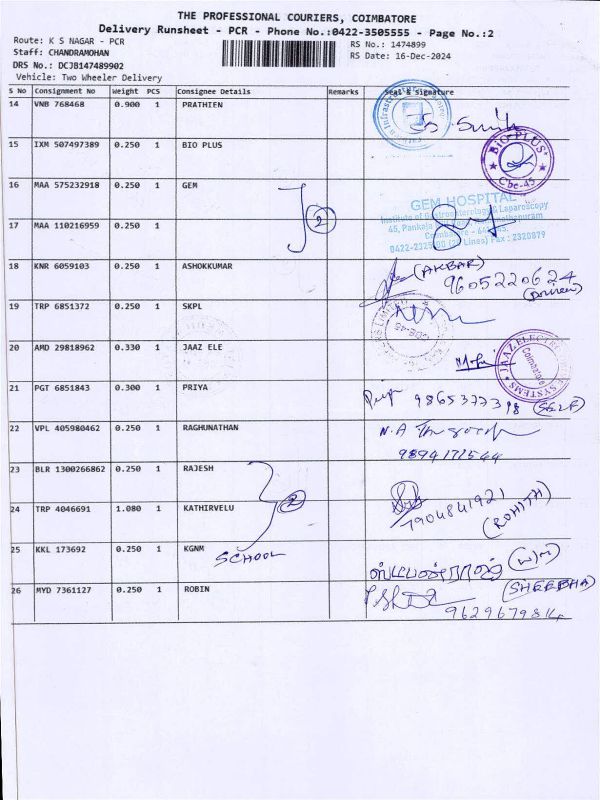 THE PROFESSIONAL COURIERS, COIMBATORE
Delivery Runsheet - PCR - Phone No.:0422-3505555 - Page No.:2
Route: K S NAGAR - PCR
RS No.: 1474899
Staff: CHANDRAMOHAN
RS Date: 16-Dec-2024
DRS No.: DCJB147489902
Vehicle: Two Wheeler Delivery
S No Consignment No Weight PCS Consignee Details Remarks Seal & Signature
14 VNB 768468 0.900 1 PRATHIEN
15 IXM 507497389 0.250 1 BIO PLUS
BIO-PLUS
Cbe-45
16 MAA 575232918 0.250 1 GEM
2
GEM HOSPITAL
Institute of Gastroenterology & Laparoscopy
45, Pankaja
Coimbatore - 641 045.
Fax : 2320879
17 MAA 110216959 0.250 1
18 KNR 6059103 0.250 1 ASHOKKUMAR (AKBAR)
9605220624
(Driver)
19 TRP 6851372 0.250 1 SKPL
CBE-45
20 AMD 29818962 0.330 1 JAAZ ELE
JAAZ ELECTRO SYSTEMS
Coimbatore
21 PGT 6851843 0.300 1 PRIYA
(SELF)
22 VPL 405980462 0.250 1 RAGHUNATHAN N.A
9894171544
23 BLR 1300266862 0.250 1 RAJESH
2
7904841921
(ROHITH)
24 TRP 4046691 1.080 1 KATHIRVELU
25 KKL 173692 0.250 1 KGNM
SCHOOL
26 MYD 7361127 0.250 1 ROBIN
(SHEEBHA)
9629679814